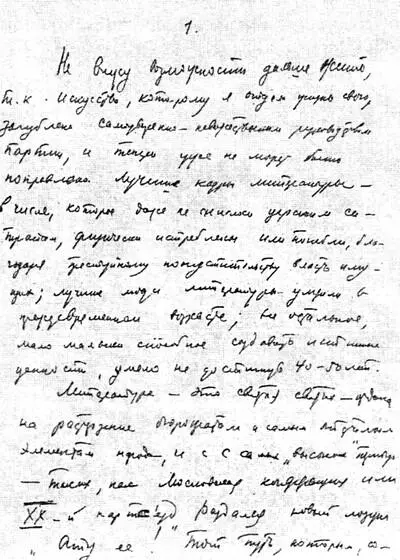 1.
Не вижу возможности дальше жить,
т.к. искусство, которому я отдал жизнь свою,
загублено самоуверенно-невежественным руководством
партии, и теперь уже не может быть
поправлено. Лучшие кадры литературы –
в числе, которое даже не снилось царским са-
трапам, физически истреблены или погибли, бла-
годаря преступному попустительству власть иму-
щих; лучшие люди литературы умерли в
преждевременном возрасте; все остальное,
мало мальски способное создавать истинные
ценности, умерло не достигнув 40-50 лет.
Литература – это святая святых – отдана
на растерзание бюрократам и самым отсталым
элементам народа, и с самых "высоких" трибун
– таких, как Московская конференция или
XX-й партсъезд раздался новый лозунг
"Ату ее"! Тот путь, которым со-